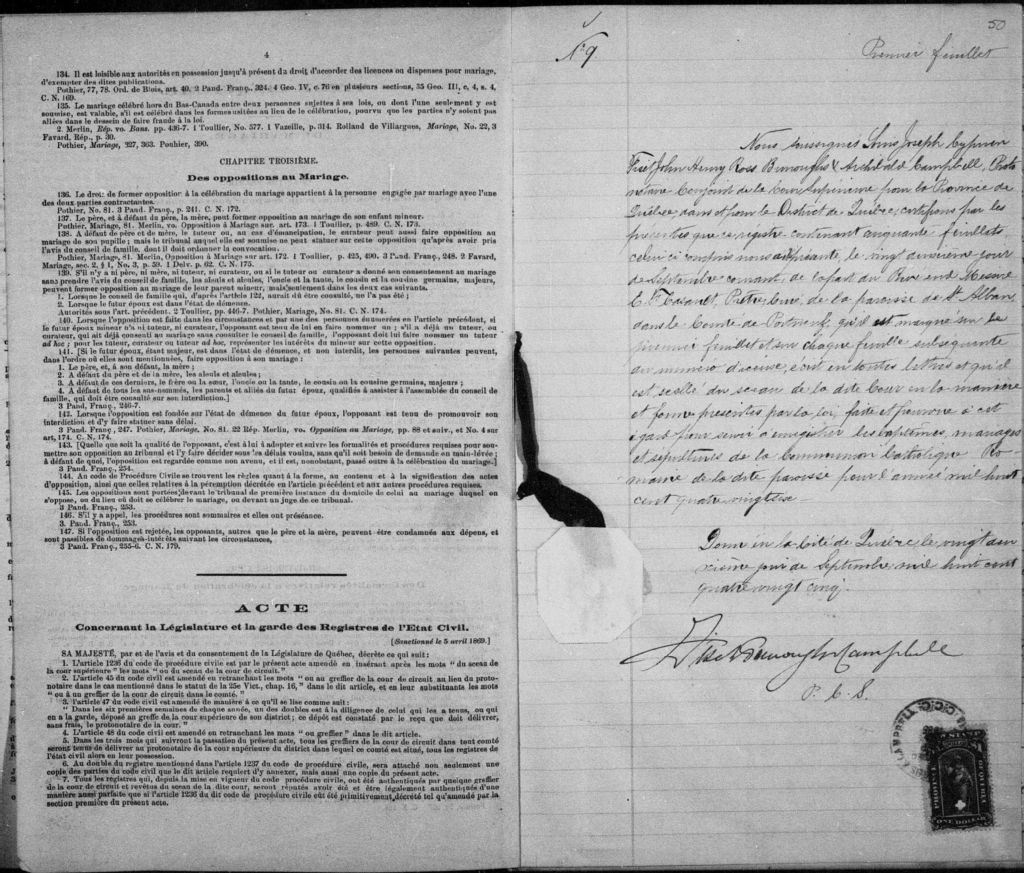 4
134. Il est loisible aux autorités en possession jusqu'à présent du droit d'accorder des licences ou dispenses pour mariage,
d'exempter des dites publications.
Pothier, 77, 78. Ord. de Blois, art. 40. 2 Pand. Franç., 324. 4 Geo. IV, c. 76 en plusieurs sections, 35 Geo. III, c, 4, s. 4,
C. N. 169.
135. Le mariage célébré hors du Bas-Canada entre deux personnes sujettes à ses lois, ou dont l'une seulement y est
soumise, est valable, s'il est célébré dans les formes usitées au lieu de la célébration, pourvu que les parties n'y soient pas
allées dans le dessein de faire fraude à la loi.
2. Merlin, Rép. vo. Bans. pp. 436-7. 1 Toullier, No. 577. 1 Vazeille, p. 314. Rolland de Villargues, Mariage, No. 22, 3
Favard, Rép., p. 30.
Pothier, Mariage, 227, 363. Pouhier, 390.
CHAPITRE TROISIÈME.
Des oppositions au Mariage.
136. Le droit de former opposition à la célébration du mariage appartient à la personne engagée par mariage avec l'une
des deux parties contractantes.
Pothier, No. 81. 3 Pand. Franç., p. 241. C. N. 172.
137. Le père, et à défaut du père, la mère, peut former opposition au mariage de son enfant mineur.
Pothier, Mariage, 81. Merlin, vo. Opposition à Mariage sur. art. 173. 1 Toullier, p. 489. C. N. 173.
138. A défaut de père et de mère, le tuteur ou, au cas d'émancipation, le curateur peut aussi faire opposition au
mariage de son pupille; mais le tribunal auquel elle est soumise ne peut statuer sur cette opposition qu'après avoir pris
l'avis du conseil de famille, dont il doit ordonner la convocation.
Pothier, Mariage, 81. Merlin, Opposition à Mariage sur art. 172. 1 Toullier, p. 425, 490. 3 Pand. Franç., 248. 2 Favard,
Mariage, sec. 2, § 1, No. 3, p. 59. 1 Delv. p. 62. C. N. 175.
139. S'il n'y a ni père, ni mère, ni tuteur, ni curateur, ou si le tuteur ou curateur a donné son consentement au mariage
sans prendre l'avis du conseil de famille, les aïeuls et aïeules, l'oncle et la tante, le cousin et la cousine germains, majeurs,
peuvent former opposition au mariage de leur parent mineur, mais seulement dans les deux cas suivants.
1. Lorsque le conseil de famille qui, d'après l'article 122, aurait dû être consulté, ne l'a pas été;
2. Lorsque le futur époux est dans l'état de démence.
Autorités sous l'art. précédent. 2 Toullier, pp. 446-7. Pothier, Mariage, No. 81. C. N. 174.
140. Lorsque l'opposition est faite dans les circonstances et par une des personnes énumérées en l'article précédent, si
le futur époux mineur n'a ni tuteur, ni curateur, l'opposant est tenu de lui en faire nommer un; s'il a déjà un tuteur, ou
curateur, qui ait déjà consenti au mariage sans consulter le conseil de famille, l'opposant doit lui faire nommer un tuteur
ad hoc; pour les tuteur, curateur ou tuteur ad hoc, représenter les intérêts du mineur sur cette opposition.
141. [Si le futur époux, étant majeur, est dans l'état de démence, et non interdit, les personnes suivantes peuvent,
dans l'ordre où elles sont mentionnées, faire opposition à son mariage:
1. Le père, et, à son défaut, la mère;
2. A défaut du père et de la mère, les aïeuls et aïeules;
3. A défaut de ces derniers, le frère ou la sœur, l'oncle ou la tante, le cousin ou la cousine germains, majeurs;
4. A défaut de tous les sus-nommés, les parents et alliés du futur époux, qualifiés à assister à l'assemblée du conseil de
famille, qui doit être consulté sur son interdiction.]
3 Pand. Franç., 246-7.
142. Lorsque l'opposition est fondée sur l'état de démence du futur époux, l'opposant est tenu de promouvoir son
interdiction et d'y faire statuer sans délai.
3 Pand. Franç., 247. Pothier, Mariage, No. 81. 22 Rép. Merlin, vo. Opposition au Mariage, pp. 88 et suiv., et No. 4 sur
art, 174. C. N. 174.
143. [Quelle que soit la qualité de l'opposant, c'est à lui à adopter et suivre les formalités et procédures requises pour sou-
mettre son opposition au tribunal et l'y faire décider sous les délais voulus, sans qu'il soit besoin de demande en main-levée;
à défaut de quoi, l'opposition est regardée comme non avenu, et il est, nonobstant, passé outre à la célébration du mariage.]
3 Pand. Franç., 254.
144. Au code de Procédure Civile se trouvent les règles quant à la forme, au contenu et à la signification des actes
d'opposition, ainsi que celles relatives à la péremption décrétée en l'article précédent et aux autres procédures requises.
145. Les oppositions sont portées devant le tribunal de première instance du domicile de celui au mariage duquel on
s'oppose, ou du lieu où doit se célébrer le mariage, ou devant un juge de ce tribunal.
3 Pand. Franç., 253.
146. S'il y a appel, les procédures sont sommaires et elles ont préséance.
3. Pand. Franç., 253.
147. Si l'opposition est rejetée, les opposants, autres que le père et la mère, peuvent être condamnés aux dépens, et
sont passibles de dommages-intérêts suivant les circonstances,
3 Pand. Franç., 255-6. C. N. 179.
ACTE
Concernant la Législature et la garde des Registres de l'Etat Civil.
[Sanctionné le 5 avril 1869.]
SA MAJESTÉ, par et de l'avis et du consentement de la Législature de Québec, décrète ce qui suit:
1. L'article 1236 du code de procédure civile est par le présent acte amendé en insérant après les mots "du sceau de
la cour supérieure" les mots "ou du sceau de la cour de circuit."
2. L'article 45 du code civil est amendé en retranchant les mots "ou au greffier de la cour de circuit au lieu du proto-
notaire dans le cas mentionné dans le statut de la 25e Vict., chap. 16," dans le dit article, et en leur substituants les mots
"ou à un greffier de la cour de circuit dans le comté."
3. l'article 47 du code civil est amendé de manière à ce qu'il se lise comme suit:
"Dans les six premières semaines de chaque année, un des doubles est à la diligence de celui qui les a tenus, ou qui
en a la garde, déposé au greffe de la cour supérieure de son district; ce dépôt est constaté par le reçu que doit délivrer,
sans frais, le protonotaire de la cour."
4. L'article 48 du code civil est amendé en retranchant les mots "ou greffier" dans le dit article.
5. Dans les trois mois qui suivront la passation du présent acte, tous les greffiers de la cour de circuit dans tout comté
seront tenus de délivrer au protonotaire de la cour supérieure du district dans lequel ce comté est situé, tous les registres de
l'état civil alors en leur possession.
6. Au double du registre mentionné dans l'article 1237 du code de procédure civile, sera attaché non seulement une
copie des parties du code civil que le dit article requiert d'y annexer, mais aussi une copie du présent acte.
7. Tous les registres qui, depuis la mise en vigueur du code procédure civile, ont été authentiqués par quelque greffier
de la cour de circuit et revêtus du sceau de la dite cour, seront réputés avoir été et être légalement authentiqués d'une
manière aussi parfaite que si l'article 1236 du dit code de procédure civile eût été primitivement décrété tel qu'amendé par la
section première du présent acte.
50
N° 9
Premier feuillet
Nous soussignés Louis Joseph Cyprien
Fiset John Henry Ross Burroughs & Archibald Campbell, Proto
notaire Conjoint de la Cour Supérieure pour la Province de
Québec dans et pour le District de Québec, certifions par les
présentes que ce registre contenant cinquante feuillets
celui ci compris nous a été présenté, le vingt deuxième jour
de Septembre courant, de la part du Révérend Messire
Prêtre Curé de la paroisse de St Alban
dans le Comté de Portneuf, qu'il est marqué sur le
premier feuillet et sur chaque feuillet subséquent
du numéro d'icelui, écrit en toutes lettres et qu'il
est scellé du sceau de la dite Cour en la manière
et forme prescrites par la loi, faite et pourvue à cet
égard pour servir à enregistrer les baptêmes, mariages
et sépultures de la Communion Catholique Ro-
maine de la dite paroisse pour l'année mil huit
cent quatre vingt six
Donné en la Cité de Québec, le vingt deu
xième jour de Septembre mil huit cent
quatre vingt cinq.
Fiset Burroughs Campbell
P. C. S.
CAMPBELL
STAMP
$1
PROVINCE
OF QUEBEC
ONE DOLLAR